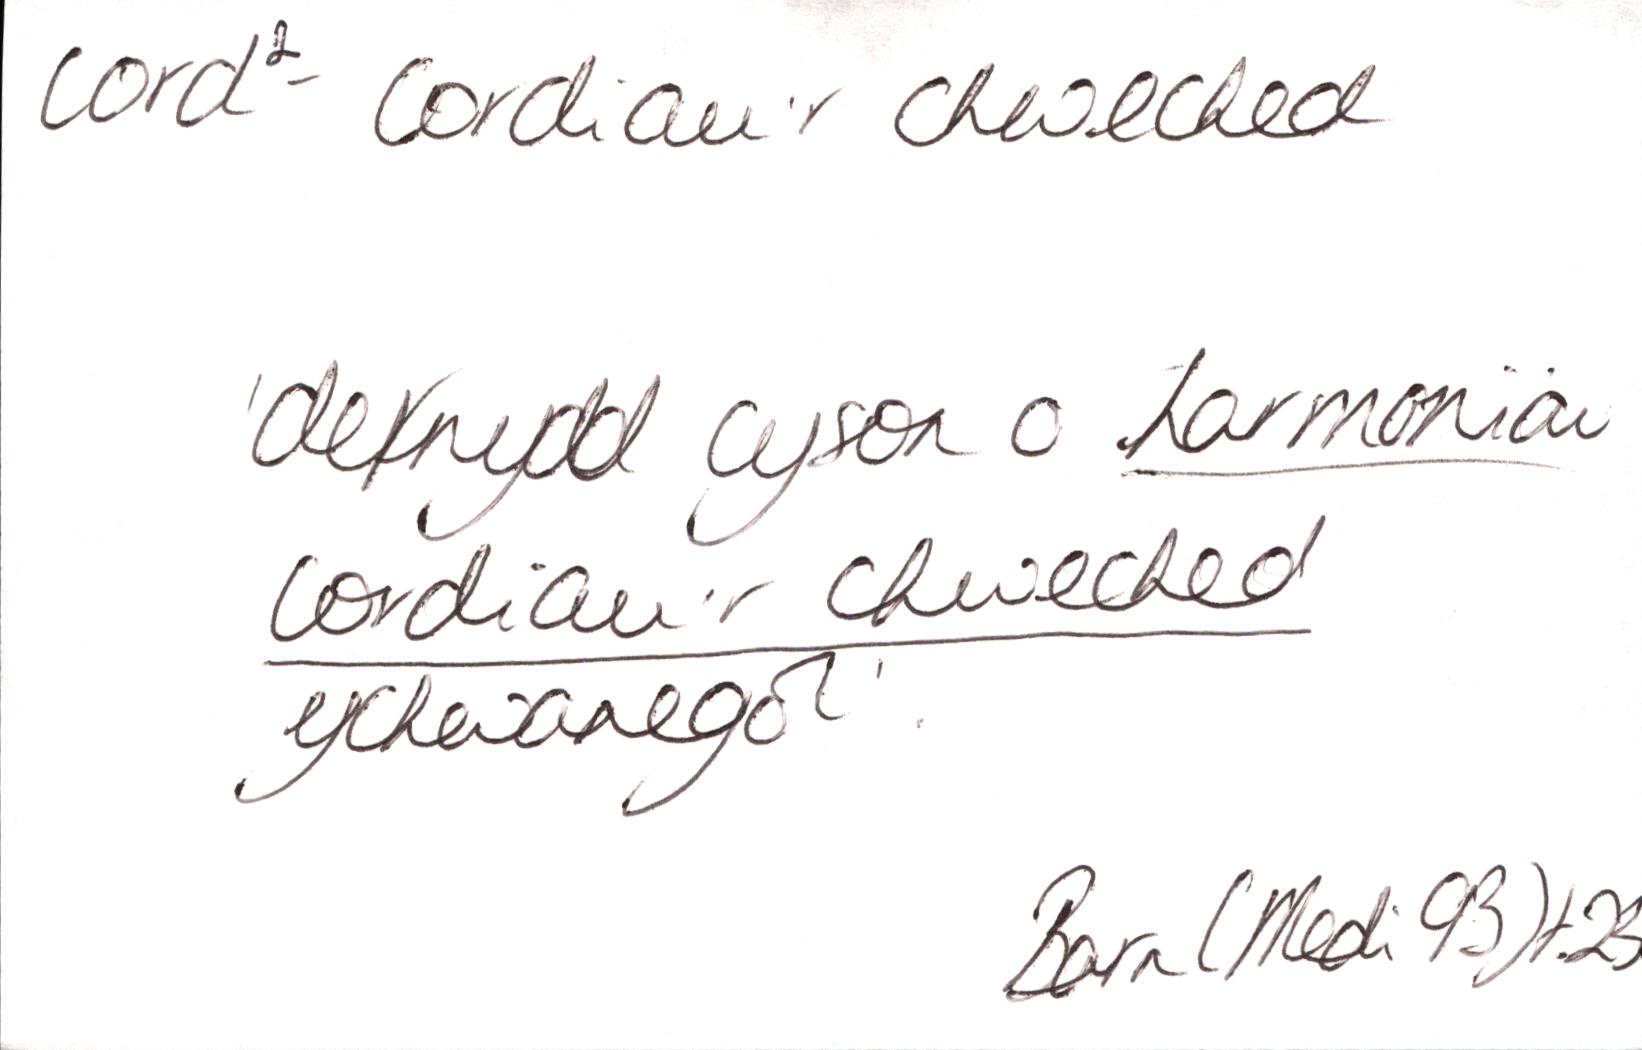 cord² - cordiau'r chweched
'defnydd cyson o harmonïau
cordiau'r chweched
ychwanegol'.
Barn (Medi 93) t.23